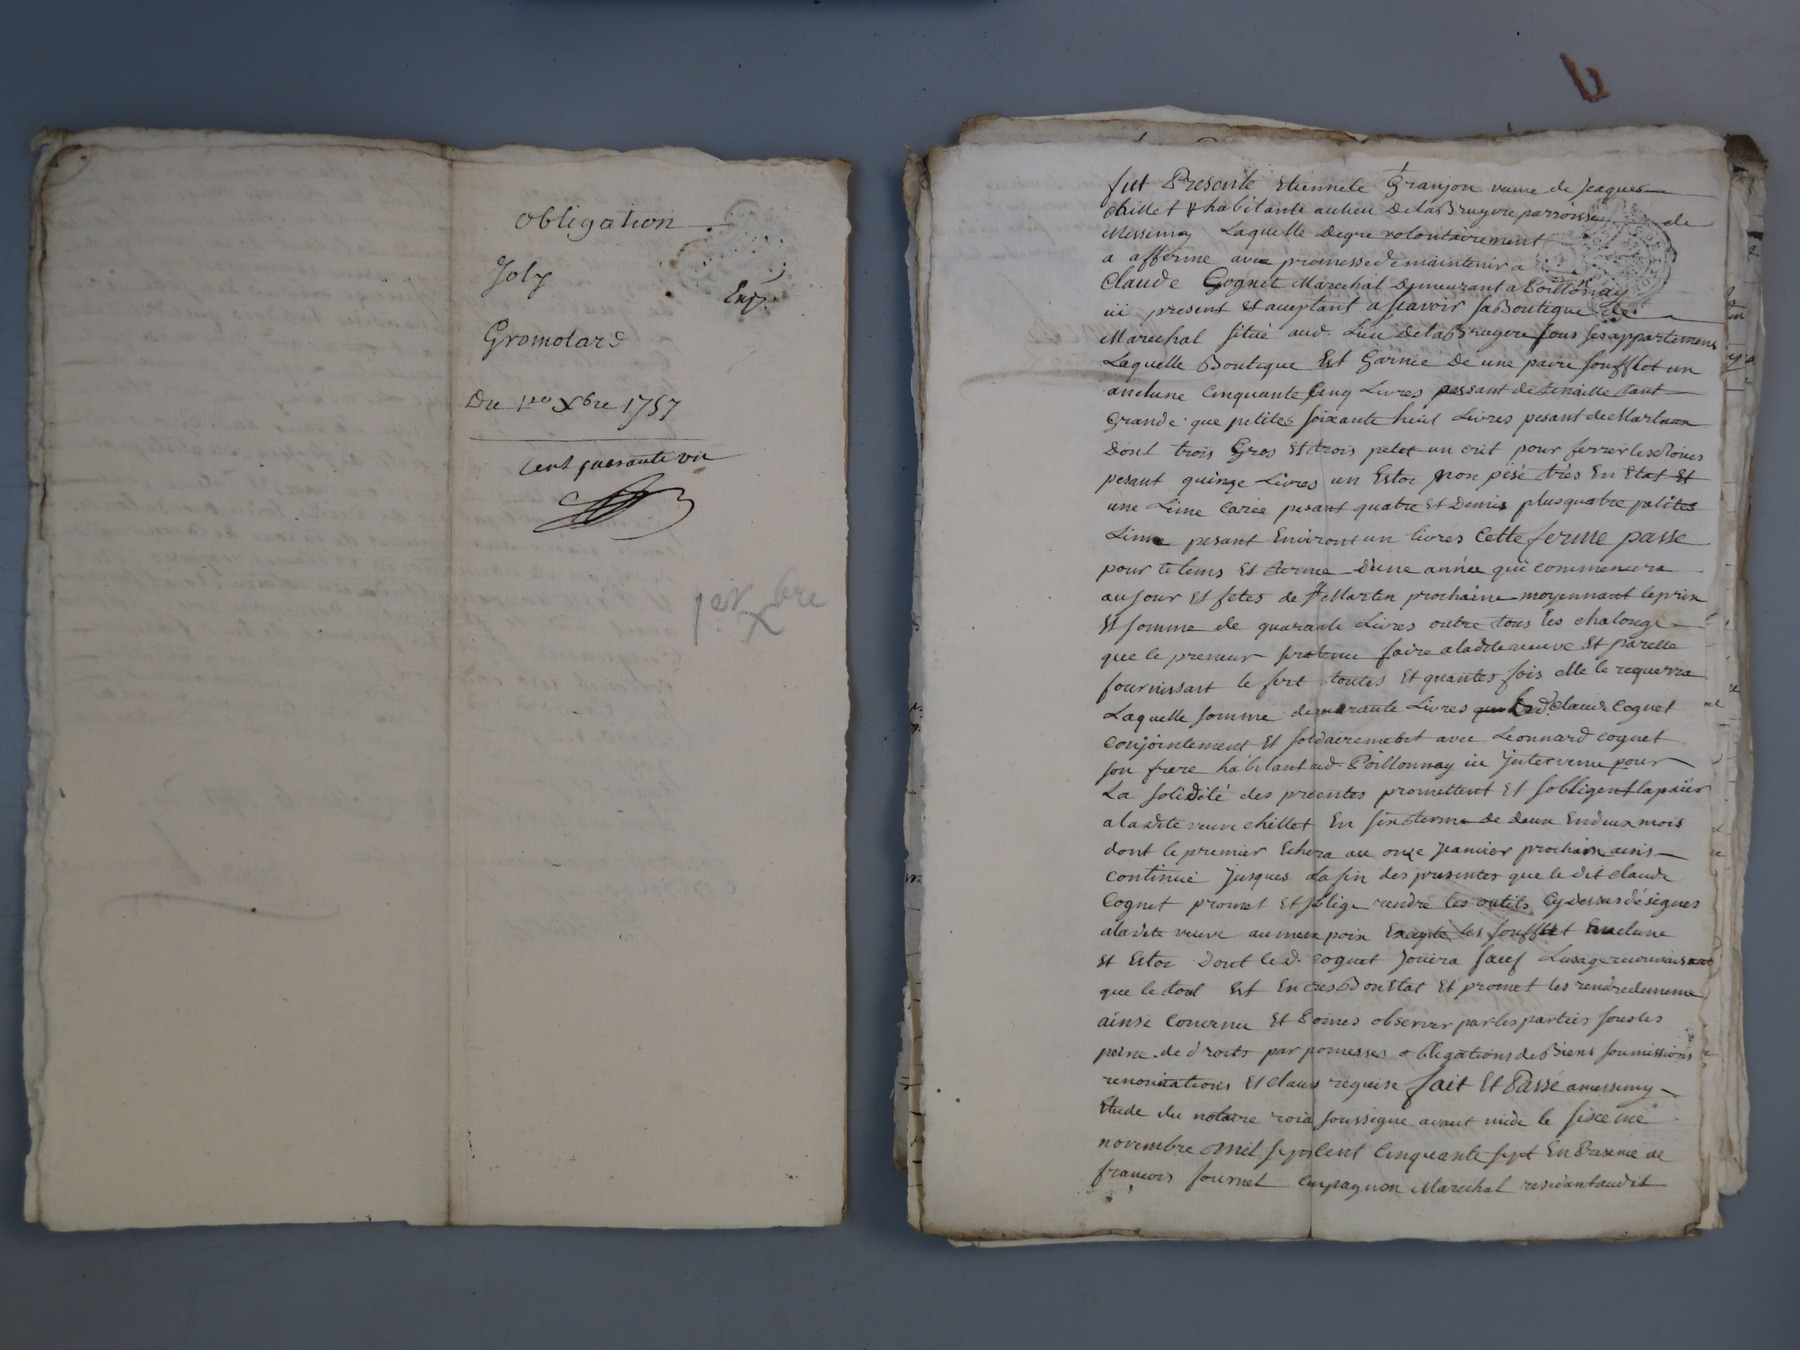 obligation
Joly
Exp.
Gromolard
Du 1er Xbre 1757
Cent quarante un
1er Xbre
fut Presente etiennete Granjon veuve de Jaques
Chillet habitante au lieu De la Bruyere parroisse de
Messimy Laquelle De gre volontairement
a afferme avec promesse de maintenir a
Claude Cognet Marechal Demeurant a Poillonnay
ici present Et aceptant a scavoir sa Boutique de
Marechal situé aud. Lieu De la Bruyere sous ses appartemens
Laquelle Boutique Est Garnie De une paire soufflet un
anclune Cinquante Cinq Livres pessant de tenaille tant
Grande que petites soixante huit Livres pesant de Marteau
Dont trois Gros Et trois petet un crit pour ferrer les Roues
pesant quinze Livres un Estoc non pesé tres En Etat Et
une Lime Carée pesant quatre Et Demis plus quatre petites
Lime pesant Environt un livres Cette ferme passe
pour le tems Et terme D'une année qui commencera
au Jour Et fetes de St Martin prochaine moyennant le prix
Et somme de quarante Livres outre tous les chalonge
que le preneur faire a ladite veuve Et parelle
fournissant le fert toutes Et quantes fois elle le requerra
Laquelle somme de quarante Livres led. Claude Cognet
Conjointement Et solidairement avec Leonnard Cognet
son frere habitant aud. Poillonnay ici Intervenu pour
La solidité des presentes promettent Et s'obligent la païer
a ladite veuve chillet En six terme de deux En deux mois
dont le premier Echera au onze Janvier prochain ainsi
continué Jusques a la fin des presentes que le dit claude
Cognet promet Et s'oblige rendre les outils Cy Dessus désignes
a ladite veuve au meme poix Excepte les soufflet Enclune
Et Estoc Dont le d. Cognet Jouira sauf L'usage reconnaissant
que le tout Est En tres Bon Etat Et promet les rendre de meme
ainsi Convenu Et observer par les parties sous les
peine de droits par promesses obligations de Biens soumissions
renonciations Et claus requise fait Et Passé a messimy
Etude du notaire roial soussigne avant midi le sixieme
novembre Mil sept Cent Cinquante sept En Presence de
francois Journet Compagnon Marechal residant audit